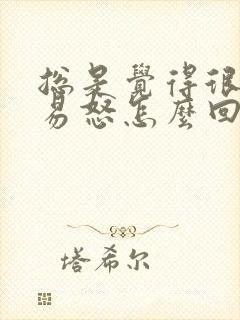 總是覺得很
易怒怎麼回
塔希尔